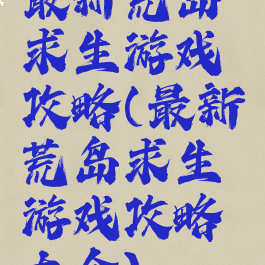 最新荒岛
求生游戏
攻略(最新
荒岛求生
游戏攻略
大全)